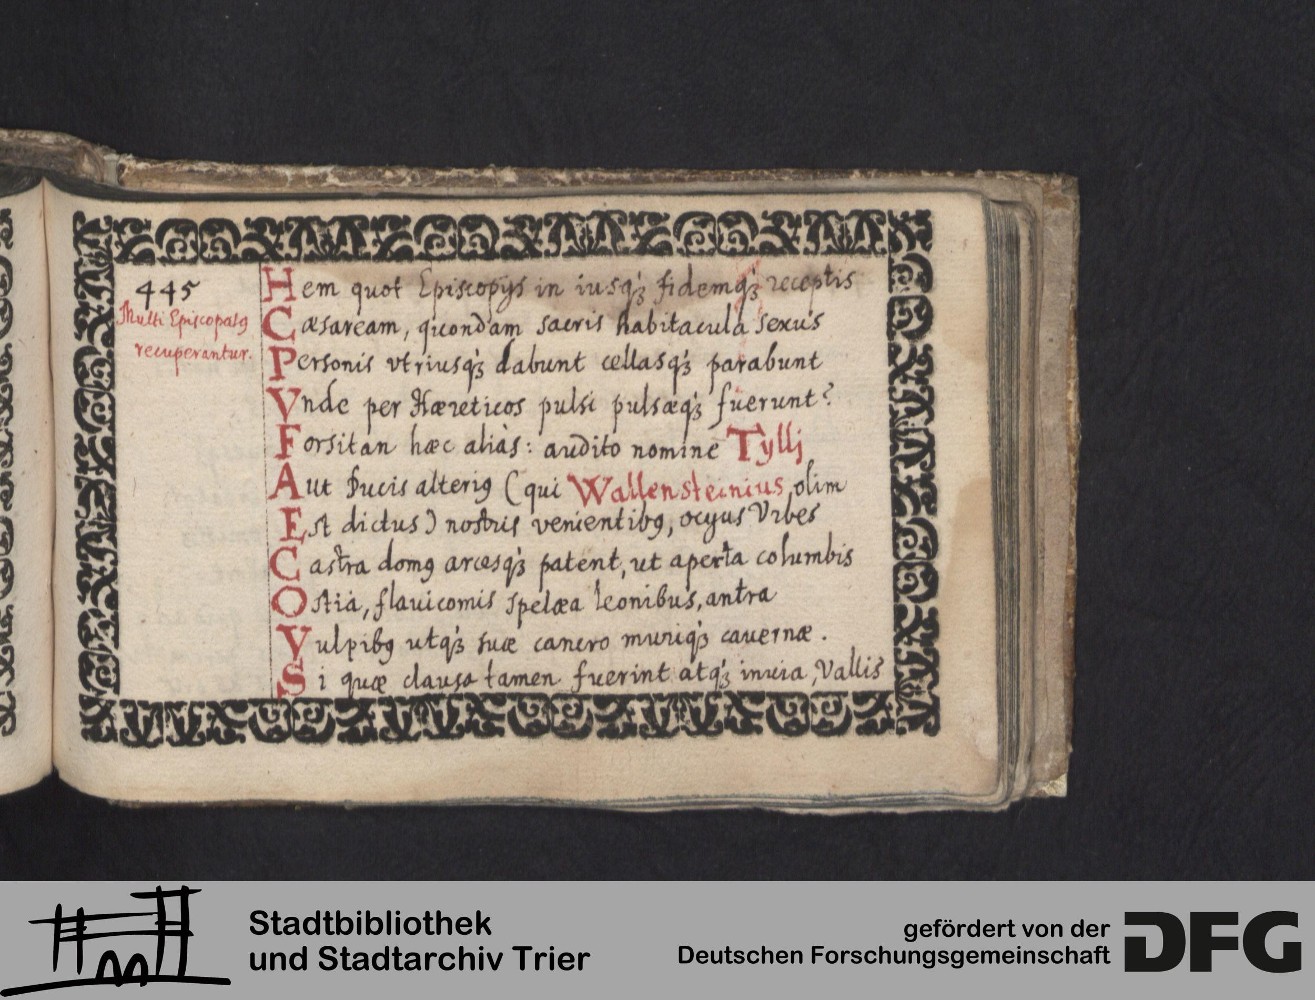 445
Multi Episcopatꝰ
recuperantur.
Hem quot Episcopijs in iusq́ꝫ fidemq́ꝫ receptis
Cæsaream, quondam sacris habitacula sexus
Personis vtriusq́ꝫ dabunt cellasq́ꝫ parabunt
Vnde per Hæreticos pulsi pulsæq́ꝫ fuerunt?
Forsitan hæc aliàs: audito nomine Tyllj
Aut Ducis alteriꝰ (qui Wallensteinius olim
Est dictus) nostris venientibꝰ, ocyus Vrbes
Castra domꝰ arcesq́ꝫ patent, ut aperta columbis
Ostia, flauicomis spelæa leonibus, antra
Vulpibꝰ utq́ꝫ suæ cancro muriq́ꝫ cauernæ.
Si quæ clausa tamen fuerint atq́ꝫ inuia, Vallis
Stadtbibliothek
und Stadtarchiv Trier
gefördert von der
Deutschen Forschungsgemeinschaft
DFG